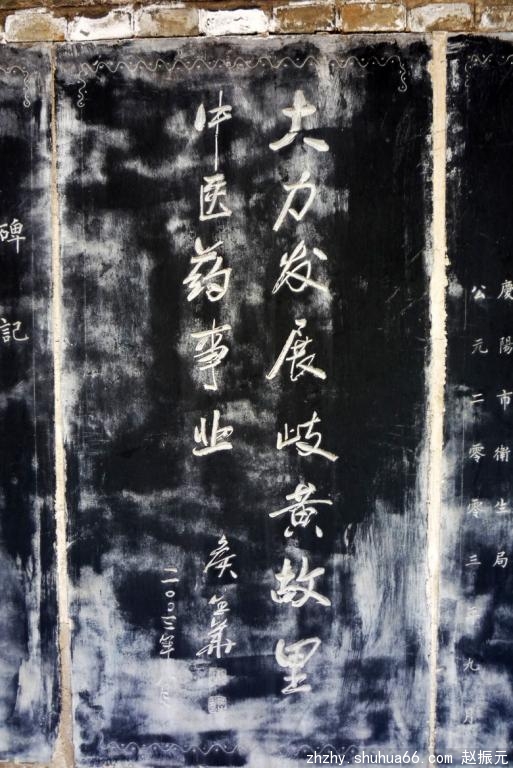 慶陽市衛生局
公元二零零三年九月
大力发展歧黄故里
中医药事业
二〇〇三年
碑記
zhzhy.shuhua66.com 赵振元